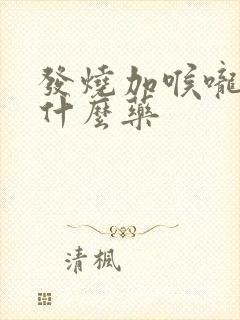 發燒加喉嚨
什麼藥
清楓